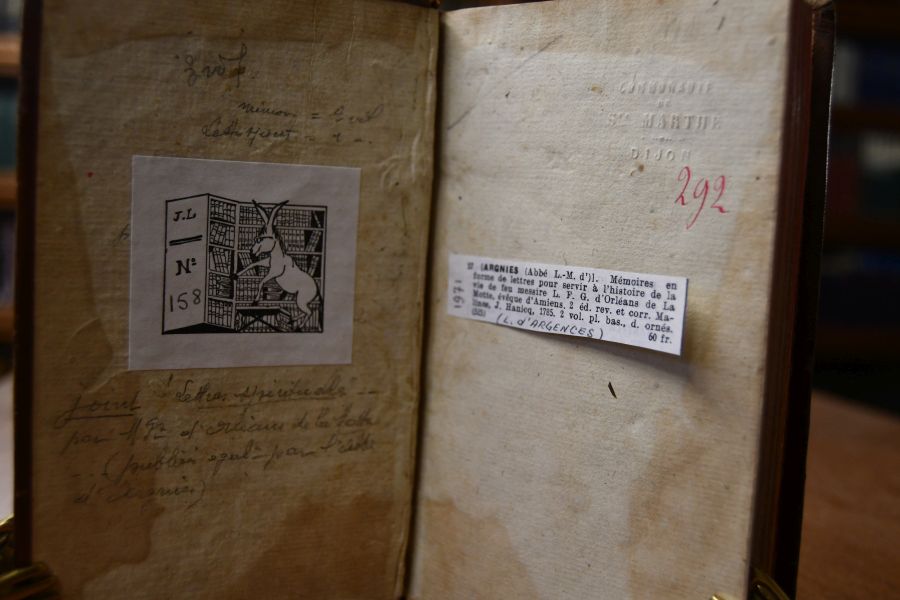 2 vol.
= 2 vol
J.L
Nº
158
joint "Lettres spirituelles" --
par Mgr d'Orléans de la Motte
-- (publiées égalt par l'abbé
d'Argnies)
COMMUNAUTÉ
DE
Ste MARTHE
DIJON
292
1971
27 (ARGNIES (Abbé L.-M. d')]. Mémoires en
forme de lettres pour servir à l'histoire de la
vie de feu messire L. F. G. d'Orléans de La
Motte, évêque d'Amiens. 2 éd. rev. et corr. Ma-
lines, J. Hanicq, 1785. 2 vol. pl. bas., d. ornés.
(525) (L. d'ARGENCES) 60 fr.